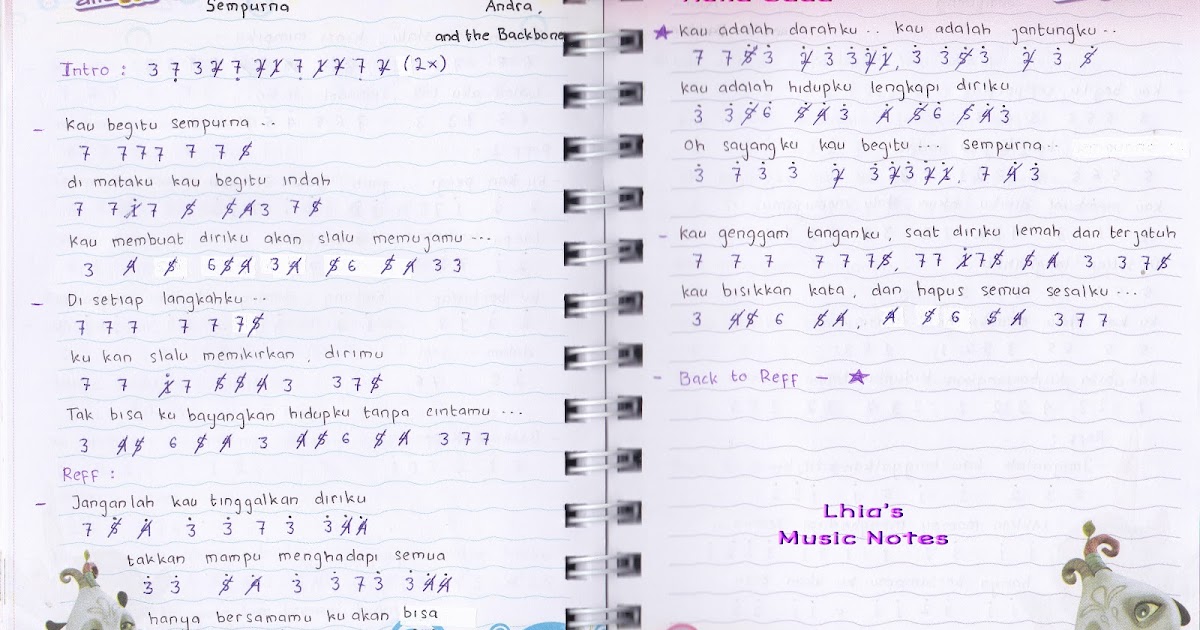 Sempurna Andra
and the Backbone
Intro : 3 7̣ 3 2̸ 7̣ 2̸ 1̸ 7 1̸ 2̸ 7 2̸ (2x)
- Kau begitu sempurna ..
7 7 7 7 7 7 5̸
di mataku kau begitu indah
7 7 1̸̇ 7 5̸ 5̸ 4̸ 3 7 5̸
Kau membuat diriku akan slalu memujamu ...
3 4̸ 5̸ 6 5̸ 4̸ 3 4̸ 5̸ 6 5̸ 4̸ 3 3
- Di setiap langkahku ..
7 7 7 7 7 7 5̸
ku kan slalu memikirkan , dirimu
7 7 1̸̇ 7 5̸ 5̸ 4̸ 3 3 7 5̸
Tak bisa ku bayangkan hidupku tanpa cintamu ...
3 4̸ 5̸ 6 5̸ 4̸ 3 4̸ 5̸ 6 5̸ 4̸ 3 7 7
Reff :
- Janganlah kau tinggalkan diriku
7 5̸̇ 4̸̇ 3̇ 3̇ 7 3̇ 3̇ 4̸̇ 4̸̇
takkan mampu menghadapi semua
3̇ 3̇ 5̸̇ 4̸̇ 3̇ 3̇ 7 3̇ 3̇ 4̸̇ 4̸̇
hanya bersamamu ku akan bisa
★ Kau adalah darahku .. kau adalah jantungku ..
7 7 5̸̇ 3̇ 2̸̇ 3̇ 3̇ 2̸̇ 1̸̇, 3̇ 3̇ 5̸̇ 3̇ 2̸̇ 3̇ 5̸̇
Kau adalah hidupku lengkapi diriku
3̇ 3̇ 5̸̇ 6̇ 5̸̇ 4̸̇ 3̇ 4̸̇ 5̸̇ 6̇ 5̸̇ 4̸̇ 3̇
Oh sayangku kau begitu ... sempurna ..
3̇ 7 3̇ 3̇ 2̸̇ 3̇ 2̸̇ 3̇ 2̸̇ 1̸̇, 7 4̸̇ 3̇
- Kau genggam tanganku, saat diriku lemah dan terjatuh
7 7 7 7 7 7 5̸, 7 7 1̸̇ 7 5̸ 5̸ 4̸ 3 3 7 5̸
kau bisikkan kata, dan hapus semua sesalku ...
3 4̸ 5̸ 6 5̸ 4̸, 4̸ 5̸ 6 5̸ 4̸ 3 7 7
- Back to Reff - ★
Lhia's
Music Notes